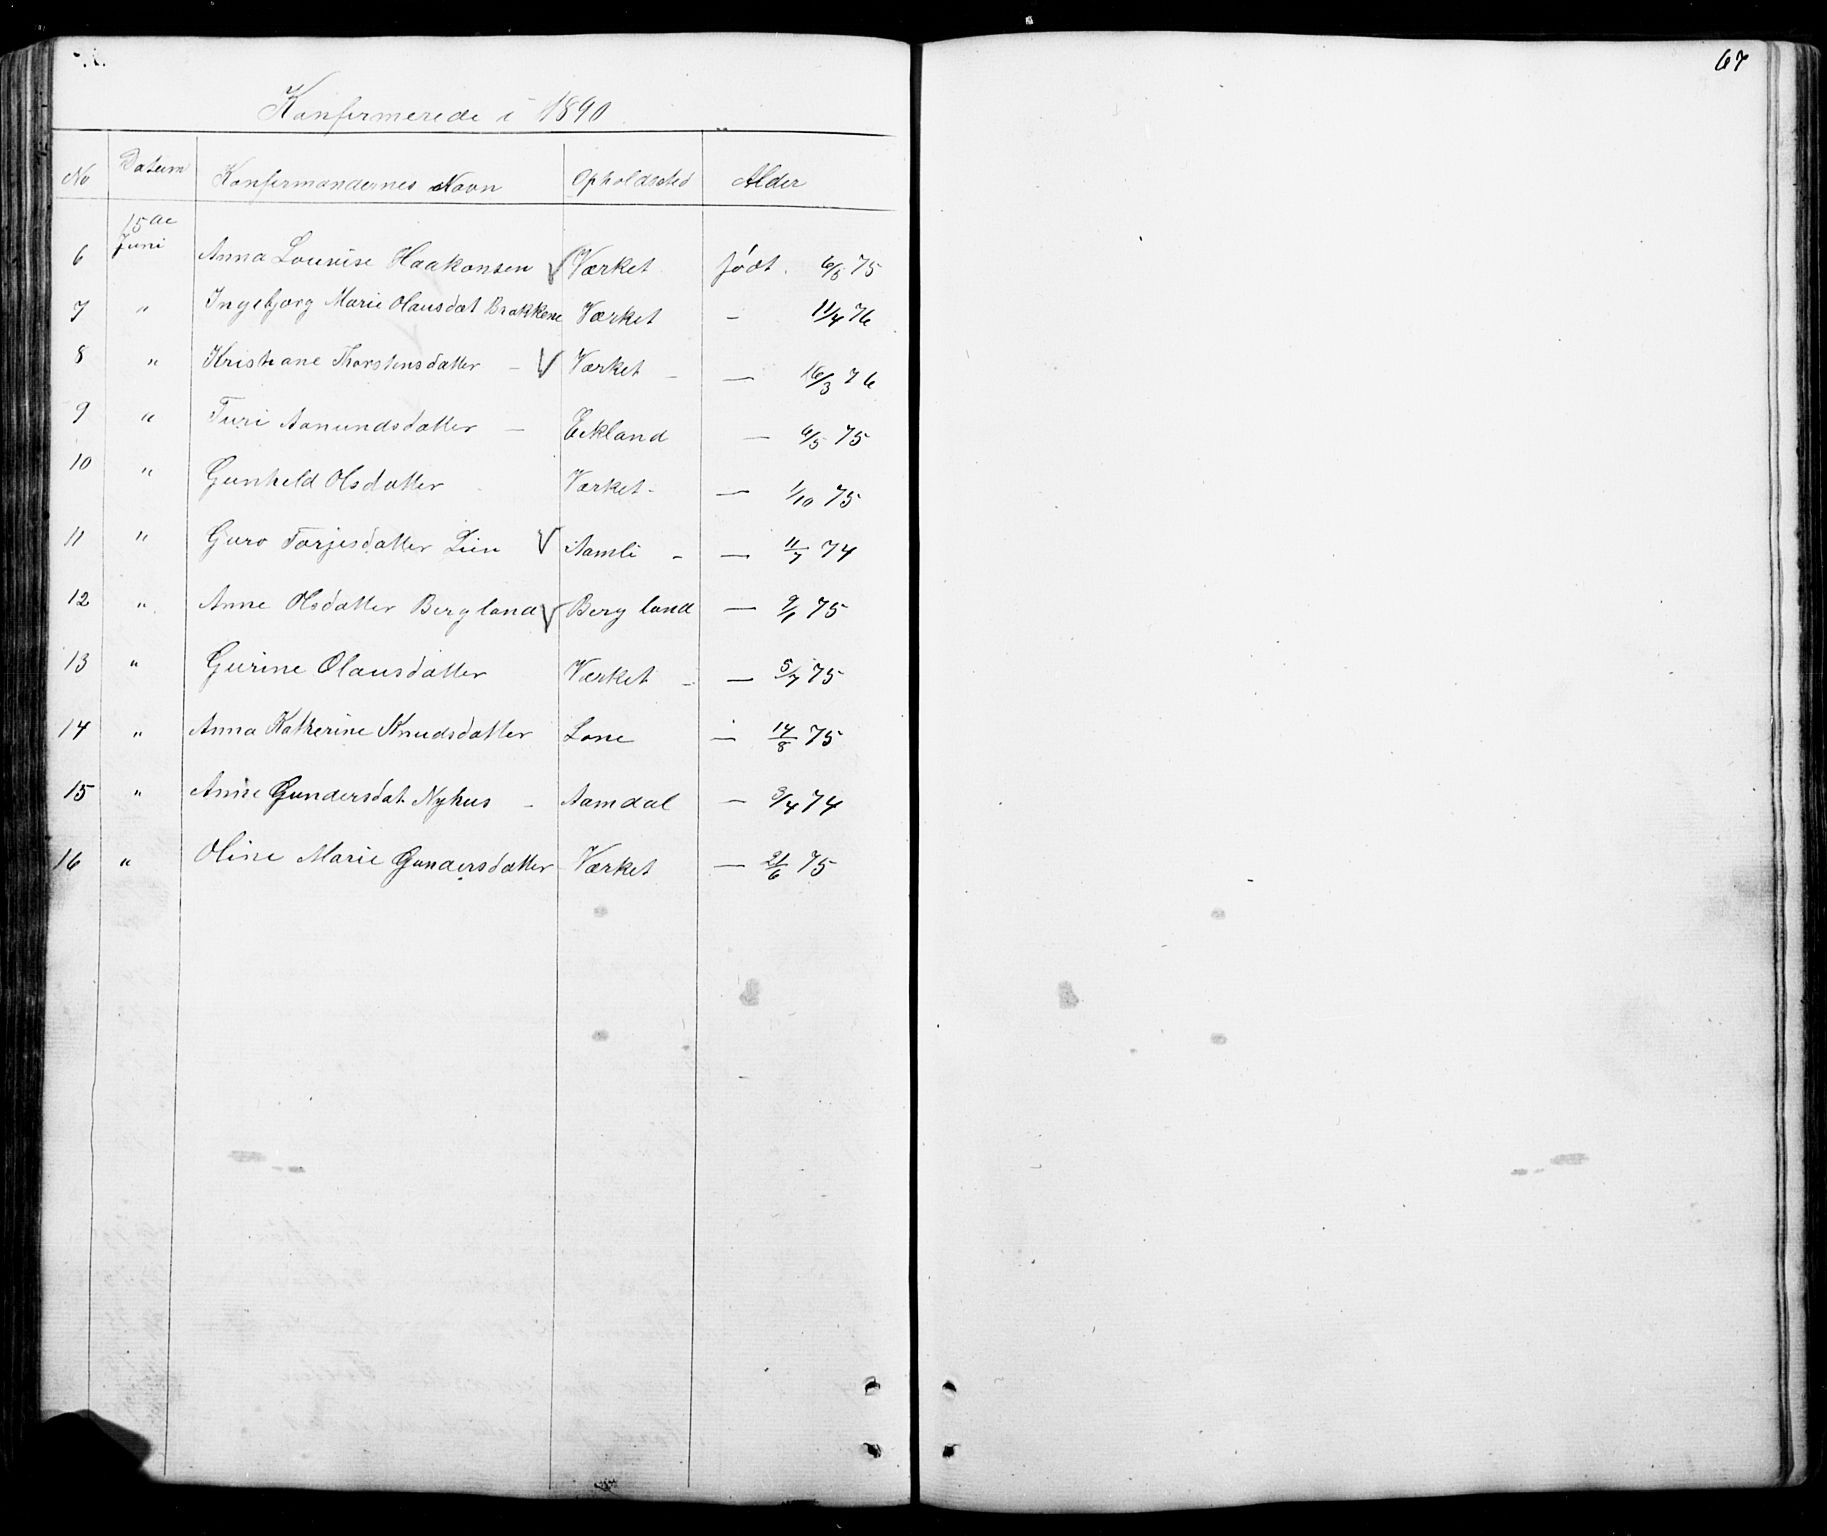 67
Konfirmerede i 1890
No Datum Konfirmandernes Navn Opholdsted Alder
15de
6 Juni Anna Louvise Haakonsen √ Værket født. 6/8 75
7 " Ingebjorg Marie Olausdat Brækkene Værket - 11/4 76
8 " Kristiane Thorstensdatter - √ Værket - — 16/3 76
9 " Turi Aanundsdatter - Eckland — 6/5 75
10 " Gunheld Olsdatter Værket - — 1/10 75
11 " Guro Torjesdatter Lien √ Aamli - — 11/7 74
12 " Anne Olsdatter Bergland √ Bergland — 9/1 75
13 " Gurine Olausdatter Værket - — 5/7 75
14 " Anna Katherine Knudsdatter Lone — 14/8 75
15 " Anne Gundersdat Nyhus - Aamdal — 3/4 74
16 " Oline Marie Gundersdatter Værket — 21/6 75